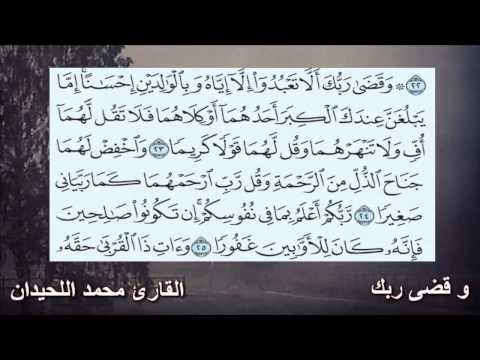 ٢٢ ۞ وَقَضَىٰ رَبُّكَ أَلَّا تَعْبُدُوٓا۟ إِلَّآ إِيَّاهُ وَبِٱلْوَٰلِدَيْنِ إِحْسَـٰنًا ۚ إِمَّا
يَبْلُغَنَّ عِندَكَ ٱلْكِبَرَ أَحَدُهُمَآ أَوْ كِلَاهُمَا فَلَا تَقُل لَّهُمَآ
أُفٍّ وَلَا تَنْهَرْهُمَا وَقُل لَّهُمَا قَوْلًا كَرِيمًا ٢٣ وَٱخْفِضْ لَهُمَا
جَنَاحَ ٱلذُّلِّ مِنَ ٱلرَّحْمَةِ وَقُل رَّبِّ ٱرْحَمْهُمَا كَمَا رَبَّيَانِى
صَغِيرًا ٢٤ رَّبُّكُمْ أَعْلَمُ بِمَا فِى نُفُوسِكُمْ ۚ إِن تَكُونُوا۟ صَـٰلِحِينَ
فَإِنَّهُۥ كَانَ لِلْأَوَّٰبِينَ غَفُورًا ٢٥ وَءَاتِ ذَا ٱلْقُرْبَىٰ حَقَّهُۥ
و قضى ربك
القارئ محمد اللحيدان